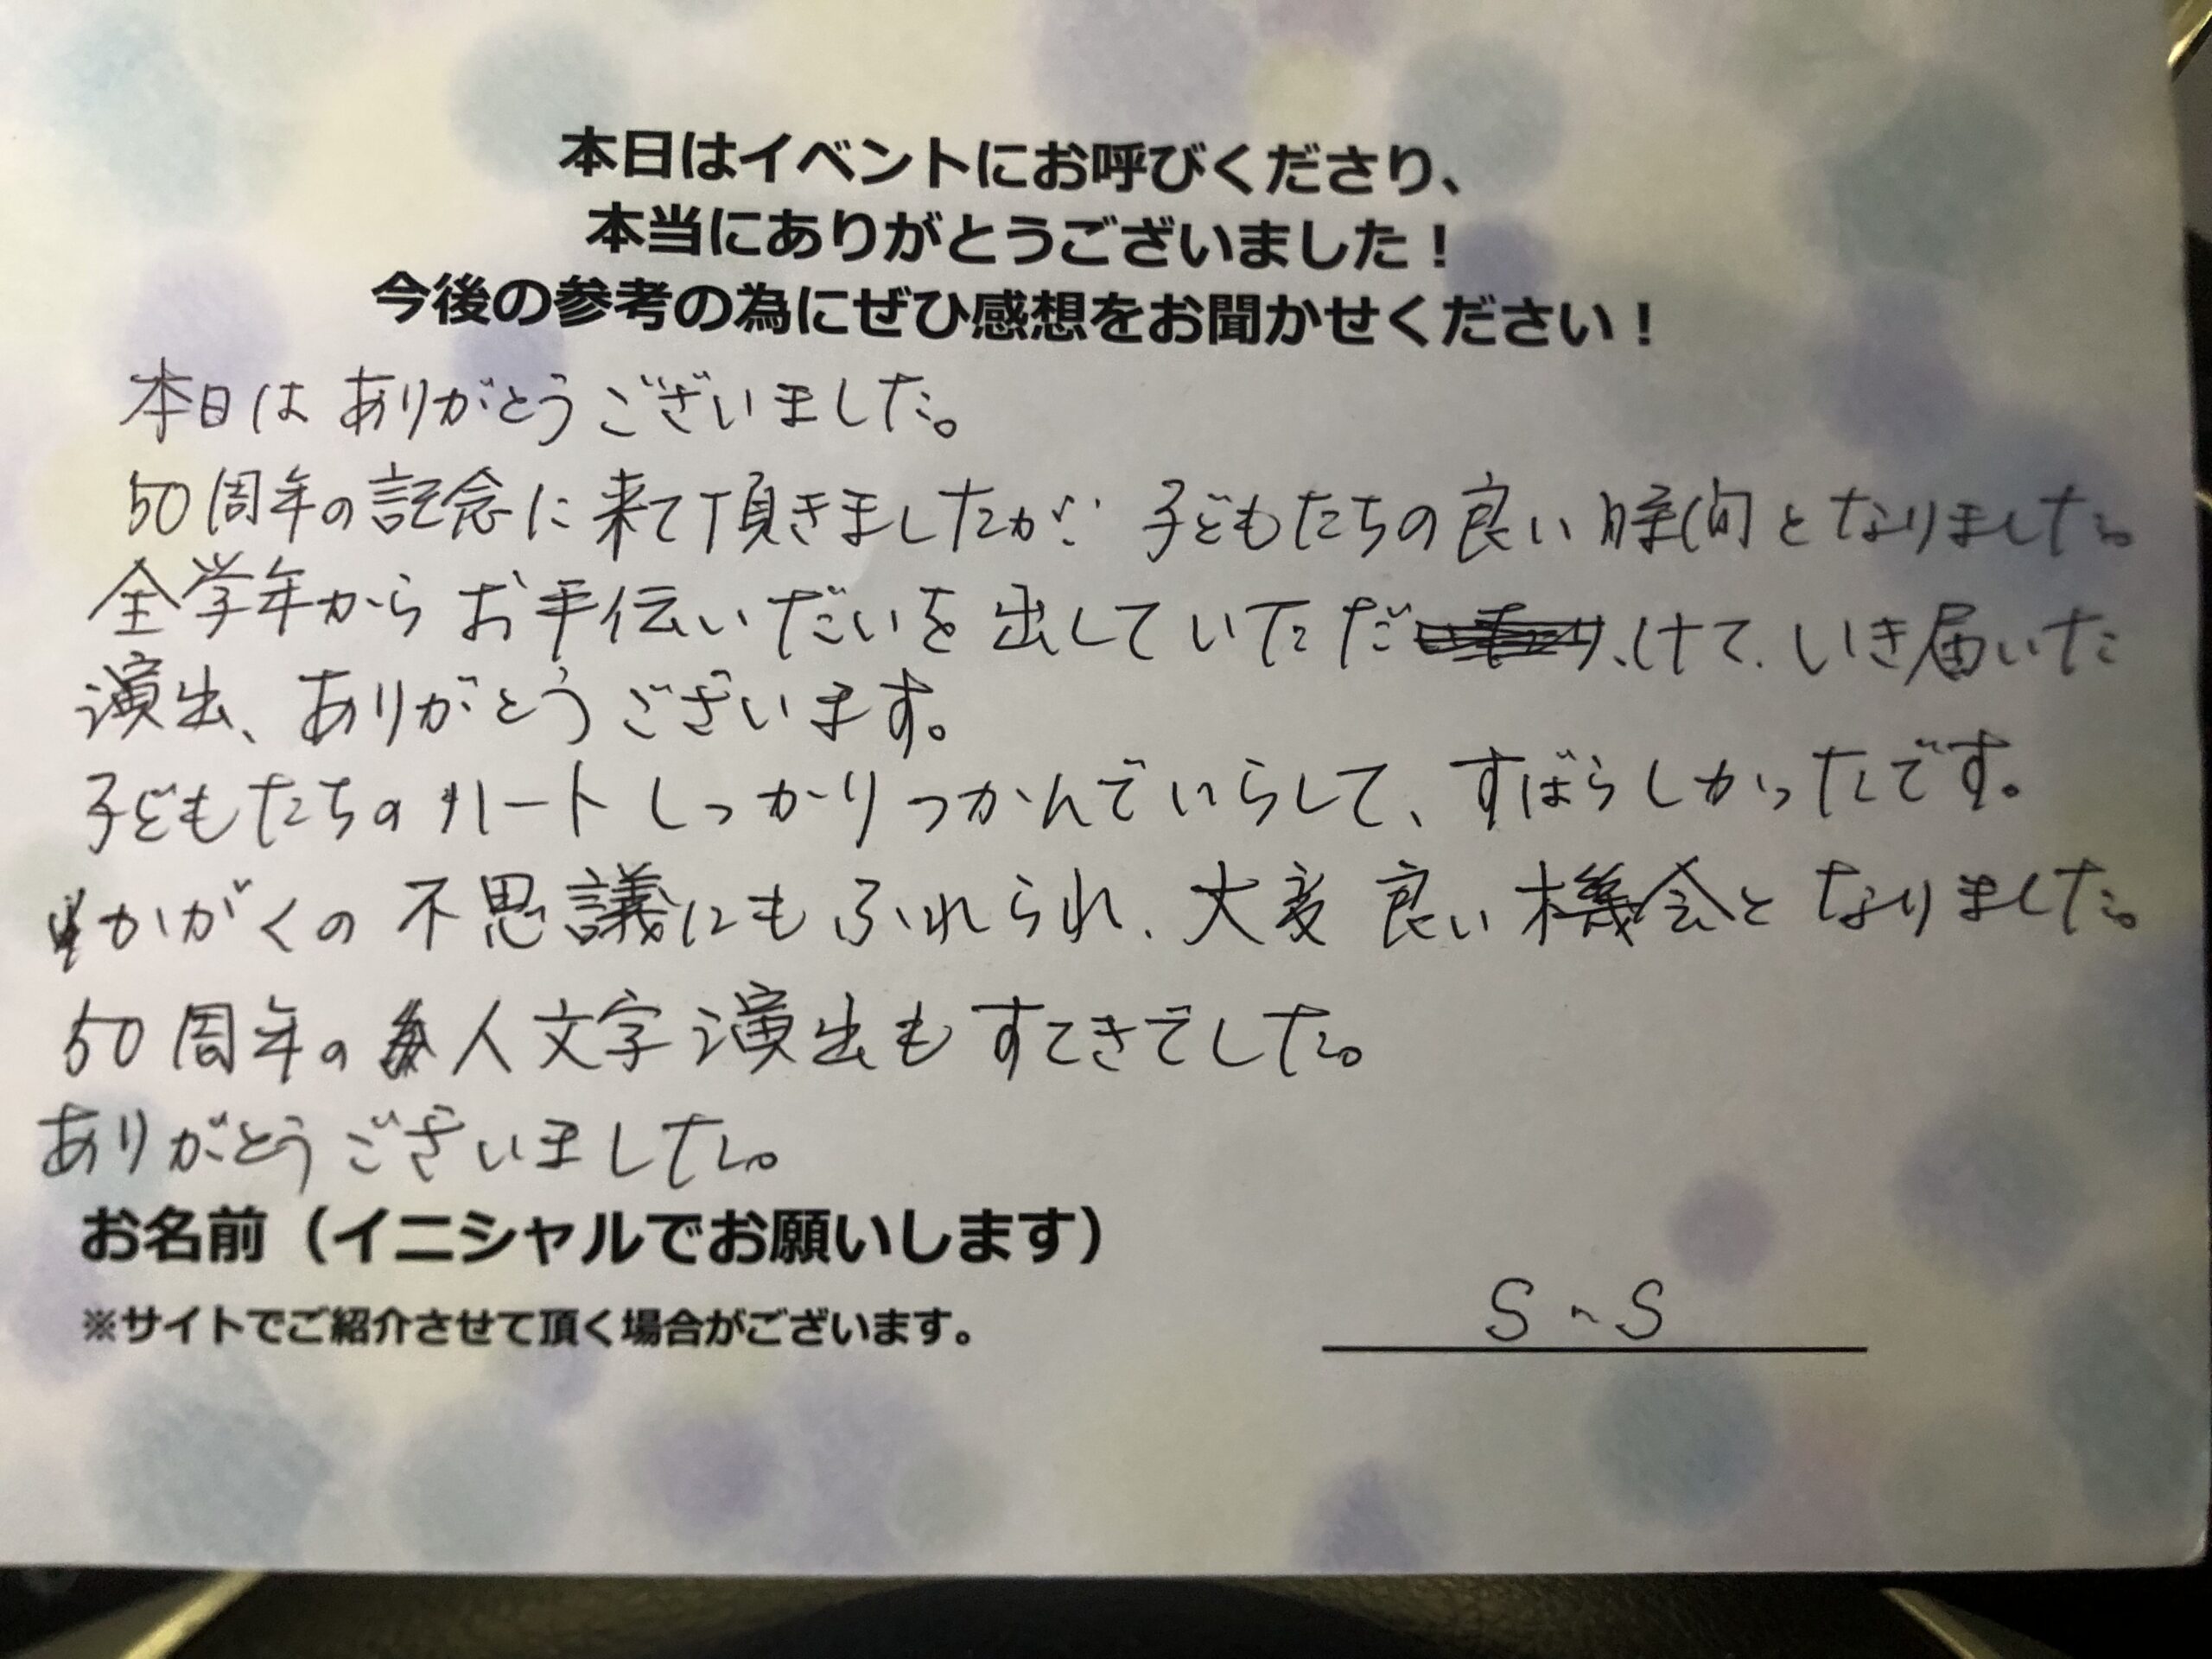 本日はイベントにお呼びくださり、
本当にありがとうございました！
今後の参考の為にぜひ感想をお聞かせください！
本日はありがとうございました。
50周年の記念に来て頂きましたが、子どもたちの良い時間となりました。
全学年からお手伝いだいを出していただけて、いき届いた
演出、ありがとうございます。
子どもたちのハートしっかりつかんでいらして、すばらしかったです。
かがくの不思議にもふれられ、大変良い機会となりました。
50周年の人文字演出もすてきでした。
ありがとうございました。
お名前（イニシャルでお願いします）
※サイトでご紹介させて頂く場合がございます。
S、S